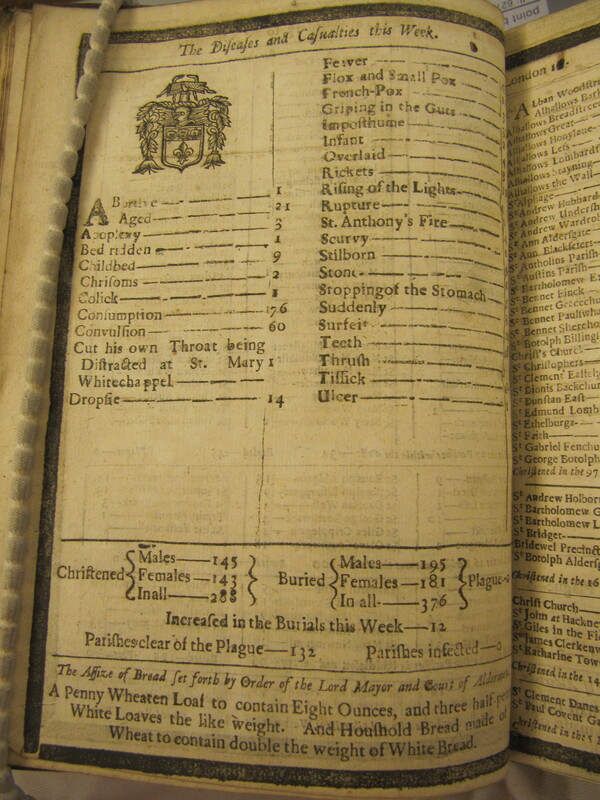 The Diſeaſes and Caſualties this Week.
ABortive 1
Aged 21
Apoplexy 3
Bed ridden 1
Childbed 9
Chriſoms 2
Colick 1
Conſumption 176
Convulſion 60
Cut his own Throat being
Diſtracted at St. Mary 1
Whitechappel
Dropſie 14
Feaver
Flox and Small Pox
French-Pox
Griping in the Guts
Impoſthume
Infant
Overlaid
Rickets
Riſing of the Lights
Rupture
St. Anthony's Fire
Scurvy
Stilborn
Stone
Stopping of the Stomach
Suddenly
Surfeit
Teeth
Thruſh
Tiſſick
Ulcer
Chriſtened
Males 145
Females 143
In all 288
Buried
Males 195
Females 181
In all 376
Plague 0
Increaſed in the Burials this Week 12
Pariſhes clear of the Plague 132 Pariſhes infected 0
The Aſſize of Bread ſet forth by Order of the Lord Mayor and Court of
A Penny Wheaten Loaf to contain Eight Ounces, and three half
White Loaves the like weight. And Houſhold Bread made of
Wheat to contain double the weight of White Bread.
London
Alban Woodſtr
Alhallows Bark
Alhallows Breadſtree
Alhallows Great
Alhallows Honylane
Alhallows Leſs
Alhallows Lombardſ
Alhallows Stayning
Alhallows the Wall
St Alphage
St Andrew Hubbard
St Andrew Underſh
St Andrew Wardrob
St Ann Alderſgate
St Ann Blackfriers
St Antholins Pariſh
St Auſtins Pariſh
St Bartholomew E
St Bennet Finck
St Bennet Gracechu
St Bennet Paulſwha
St Bennet Sherehog
St Botolph Billing
Chriſt's Church
St Chriſtophers
St Clement Eaſtch
St Dionis Backchur
St Dunſtan Eaſt
St Edmund Lomb
St Ethelburga
St Faith
St Gabriel Fenchu
St George Botolph
Chriſtened in the 97
St Andrew Holborn
St Bartholomew G
St Bartholomew L
St Bridget
Bridewel Precinct
St Botolph Alderſ
Chriſtened in the 16
Chriſt Church
St John at Hackney
St Giles in the Fi
St James Clerkenw
St Katharine Tow
Chriſtened in the 14
St Clement Danes
St Paul Covent Ga
Chriſtened in the 5